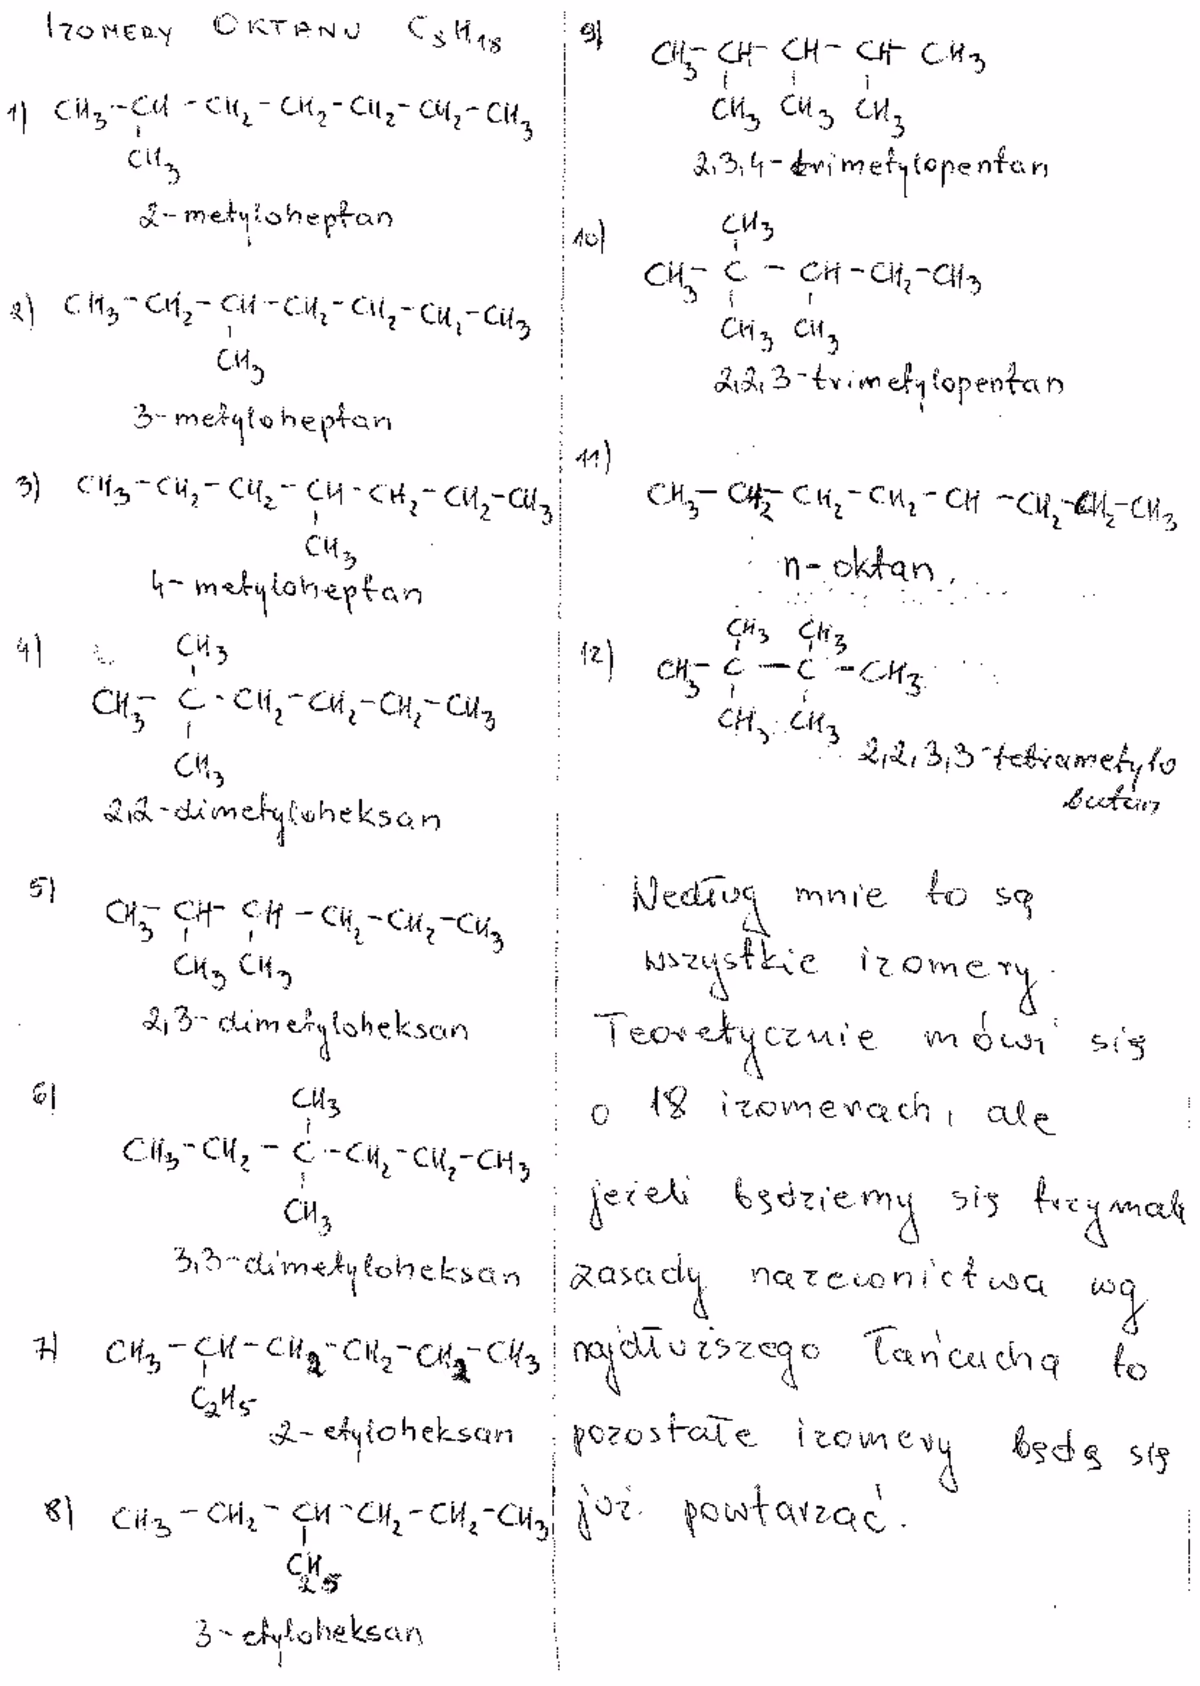 IZOMERY OKTANU C8H18
1) CH3-CH-CH2-CH2-CH2-CH2-CH3
CH3
2-metyloheptan
2) CH3-CH2-CH-CH2-CH2-CH2-CH3
CH3
3-metyloheptan
3) CH3-CH2-CH2-CH-CH2-CH2-CH3
CH3
4-metyloheptan
4) CH3
CH3-C-CH2-CH2-CH2-CH3
CH3
2,2-dimetyloheksan
5) CH3-CH-CH-CH2-CH2-CH3
CH3 CH3
2,3-dimetyloheksan
6) CH3
CH3-CH2-C-CH2-CH2-CH3
CH3
3,3-dimetyloheksan
7) CH3-CH-CH2-CH2-CH2-CH3
C2H5
2-etyloheksan
8) CH3-CH2-CH-CH2-CH2-CH3
C2H5
3-etyloheksan
9) CH3-CH-CH-CH-CH3
CH3 CH3 CH3
2,3,4-trimetylopentan
10) CH3
CH3-C-CH-CH2-CH3
CH3 CH3
2,2,3-trimetylopentan
11)
CH3-CH2-CH2-CH2-CH-CH2-CH2-CH3
n-oktan
12) CH3 CH3
CH3-C-C-CH3
CH3 CH3
2,2,3,3-tetrametylo
butan
Według mnie to są
wszystkie izomery.
Teoretycznie mówi się
o 18 izomerach, ale
jeżeli będziemy się trzymali
zasady nazewnictwa wg
najdłuższego łańcucha to
pozostałe izomery będą się
już powtarzać.